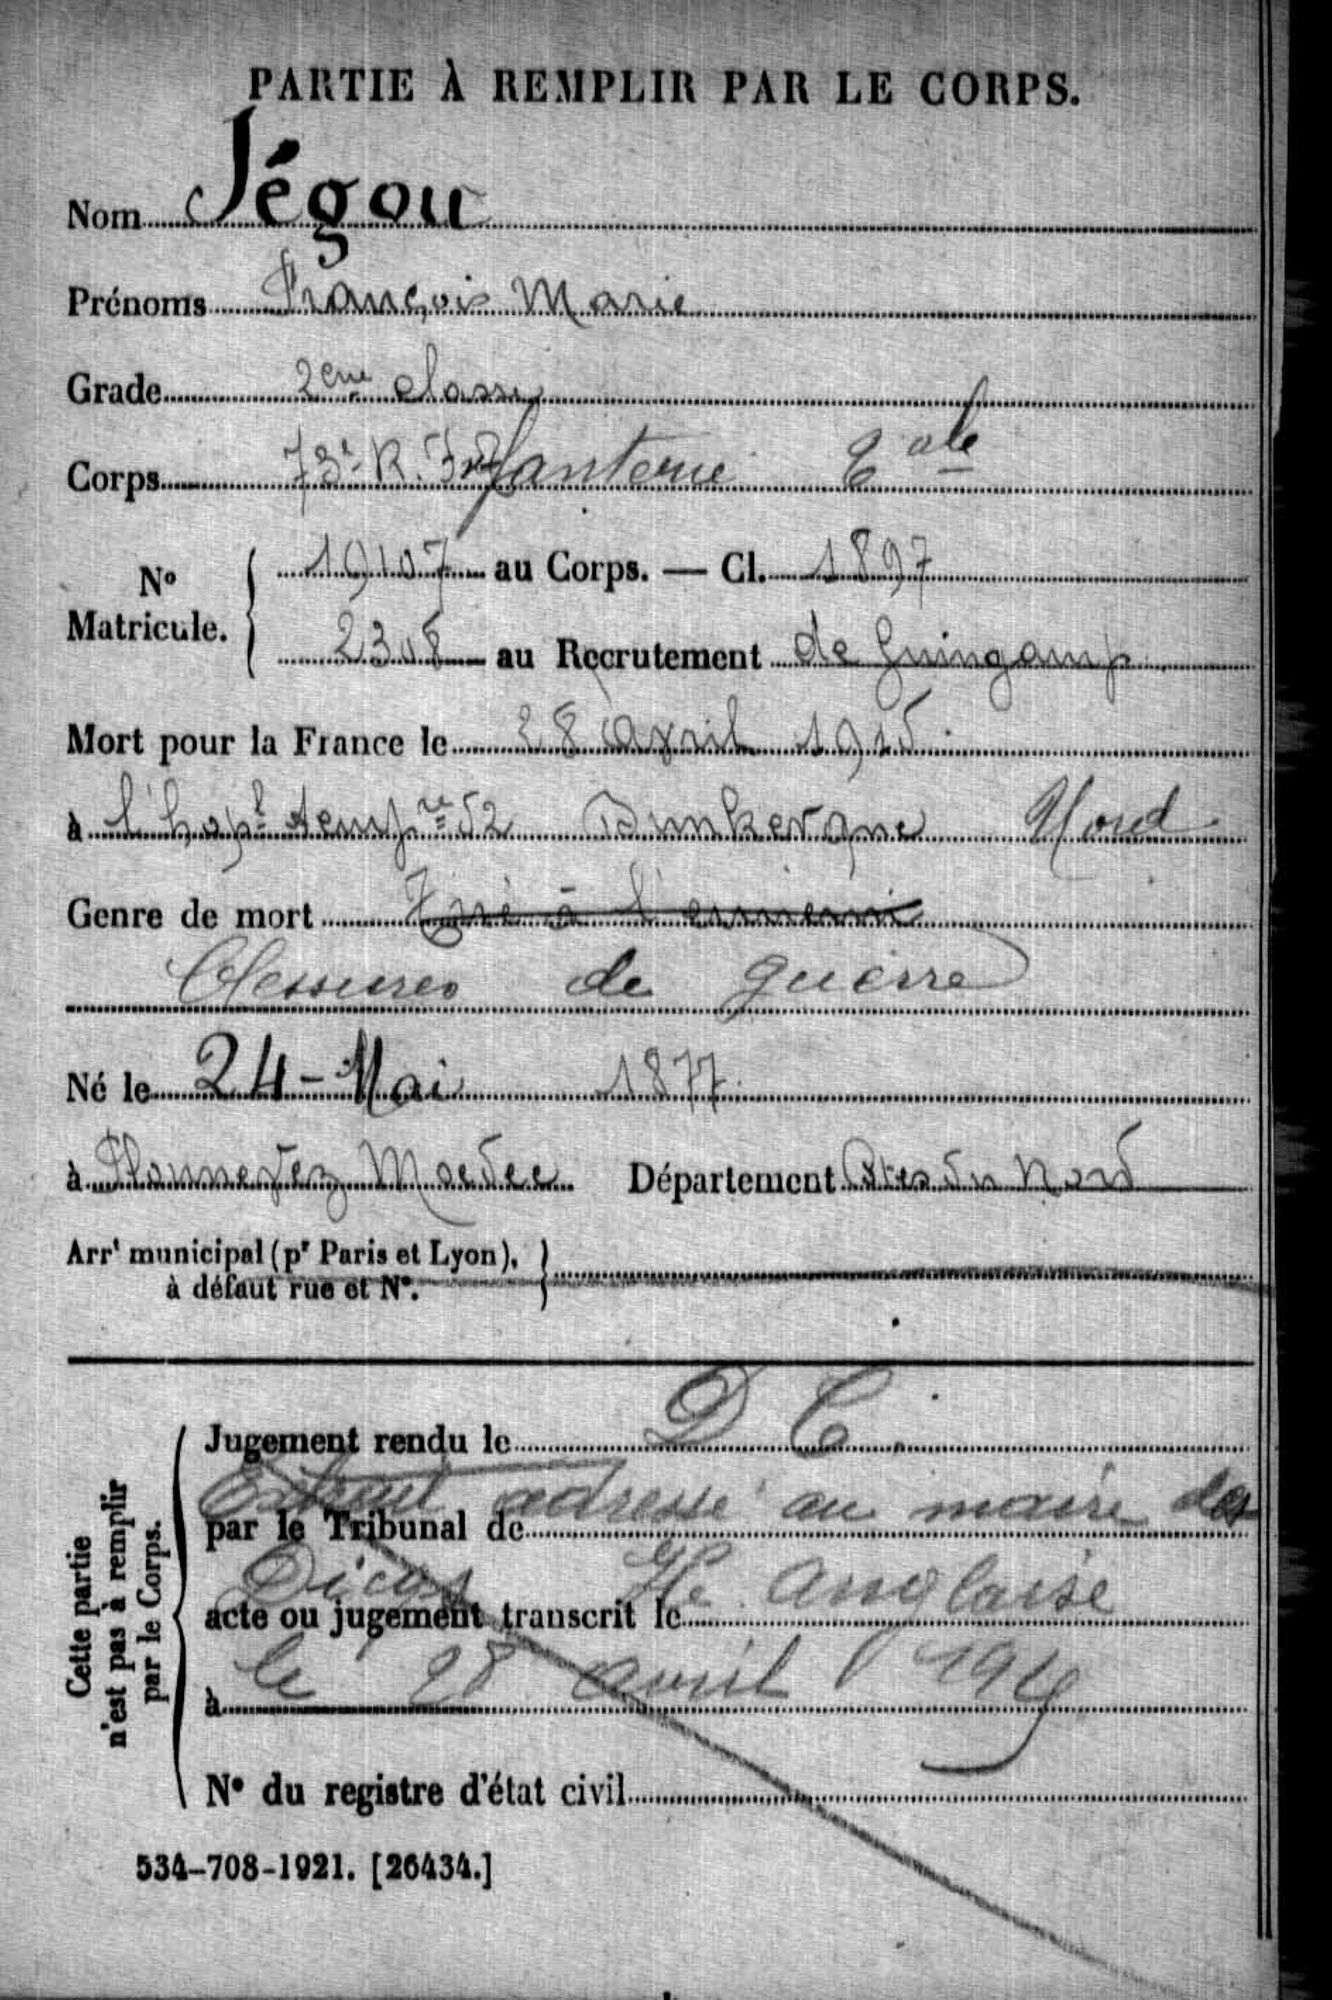 PARTIE À REMPLIR PAR LE CORPS.
Nom Jégou
Prénoms François Marie
Grade 2ème classe
Corps 73e R. Infanterie Cale
No Matricule. 19107 au Corps. — Cl. 1897
2308 au Recrutement de Guingamp
Mort pour la France le 28 avril 1915
à l'hopl tempre 52 Dunkerque Nord
Genre de mort Tué à l'ennemi
Blessures de guerre
Né le 24 - Mai 1877
à Plounevez Moedec Département Côtes du Nord
Arrt municipal (pr Paris et Lyon), à défaut rue et No.
Cette partie n'est pas à remplir par le Corps.
Jugement rendu le D C.
Extrait adressé au maire de
par le Tribunal de
Anglaise
acte ou jugement transcrit le
le 28 avril
à
No du registre d'état civil
534-708-1921. [26434.]